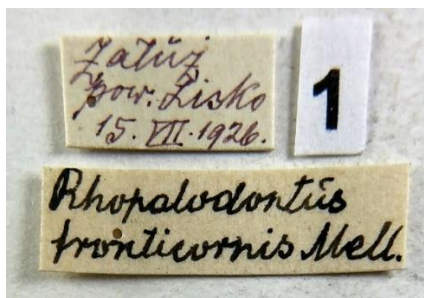 Załuż
pow. Lisko
15. VII. 1926.
1
Rhopalodontus
fronticornis Mell.